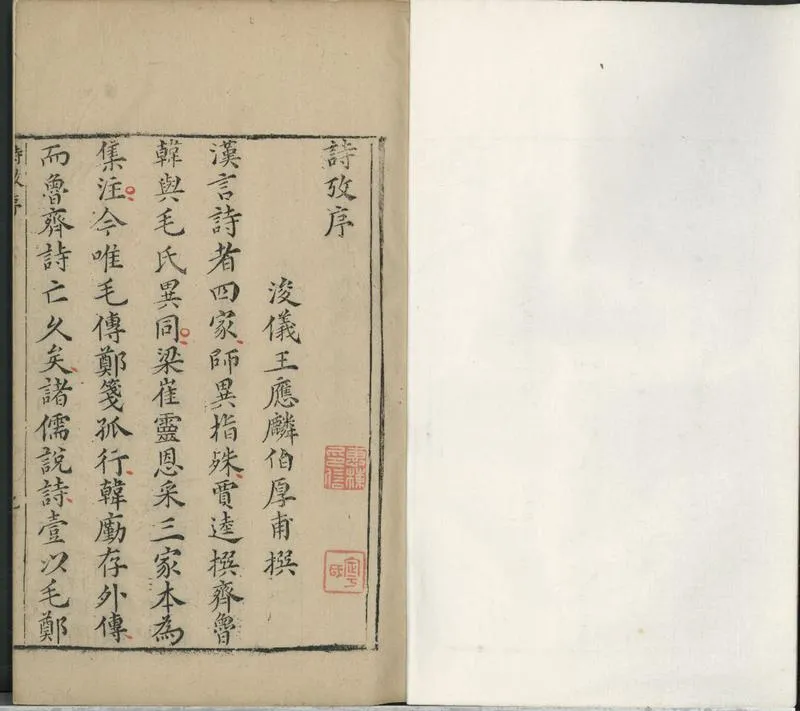 詩攷序
浚儀王應麟伯厚甫撰
漢言詩者四家師異指殊賈逵撰齊魯
韓與毛氏異同梁崔靈恩采三家本為
集注今唯毛傳鄭箋孤行韓廑存外傳
而魯齊詩亡久矣諸儒說詩壹以毛鄭
詩攷序
惠棟
定宇